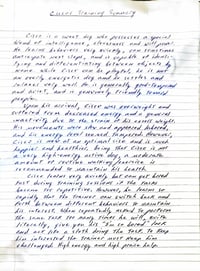 Cisco's Training Summary
Cisco is a smart dog who possesses a special
blend of intelligence, cleverness and willpower.
He learns quickly, can sometimes
anticipate next steps, and is capable of
and differentiating between objects by
name. While Cisco can be playful, he is not
an overly energetic dog and he settles and
relaxes very well. He is generally good tempered
and sweet, and is generally friendly toward
people.
Upon his arrival, Cisco was overweight and
suffered from decreased energy and a general
due to the strain of his excess weight.
His movements were slow and appeared labored,
and his energy level seemed tempered. However,
Cisco is now at an optimal size and is much
and healthier. Being that Cisco is not
a very high-energy active dog, a moderate
amount of routine walking/exercise is
recommended to maintain his health.
Cisco learns very quickly but can get bored
fast during training sessions if the tasks
become too repetitive. However, he learns so
rapidly that the trainer can switch back and
forth between different behaviors to maintain
his interest. When repeatedly asked to perform
the same task too many times he will, quite
literally, give you his "I'm so bored" look
and not give a
him interested the trainer must keep him
challenged. High energy and high praise helps